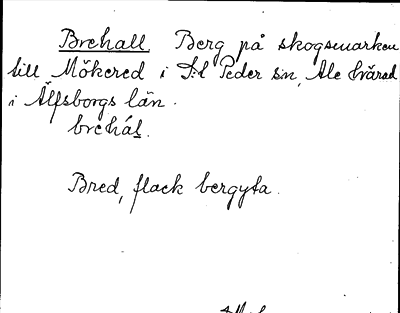 Brehall Berg på skogsmarken
till Mökered i S:t Peder sn, Ale härad
i Älfsborgs län.
brehál.
Bred, flack bergyta.